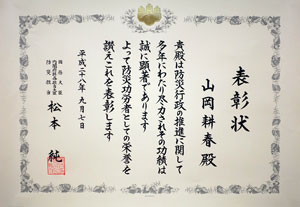 表彰状
山岡耕春殿
貴殿は防災行政の推進に関して
多年にわたり尽力されその功績は
誠に顕著であります
よって防災功労者としての栄誉を
讃えこれを表彰します
平成二十八年九月七日
国務大臣
防災担当
松本 純